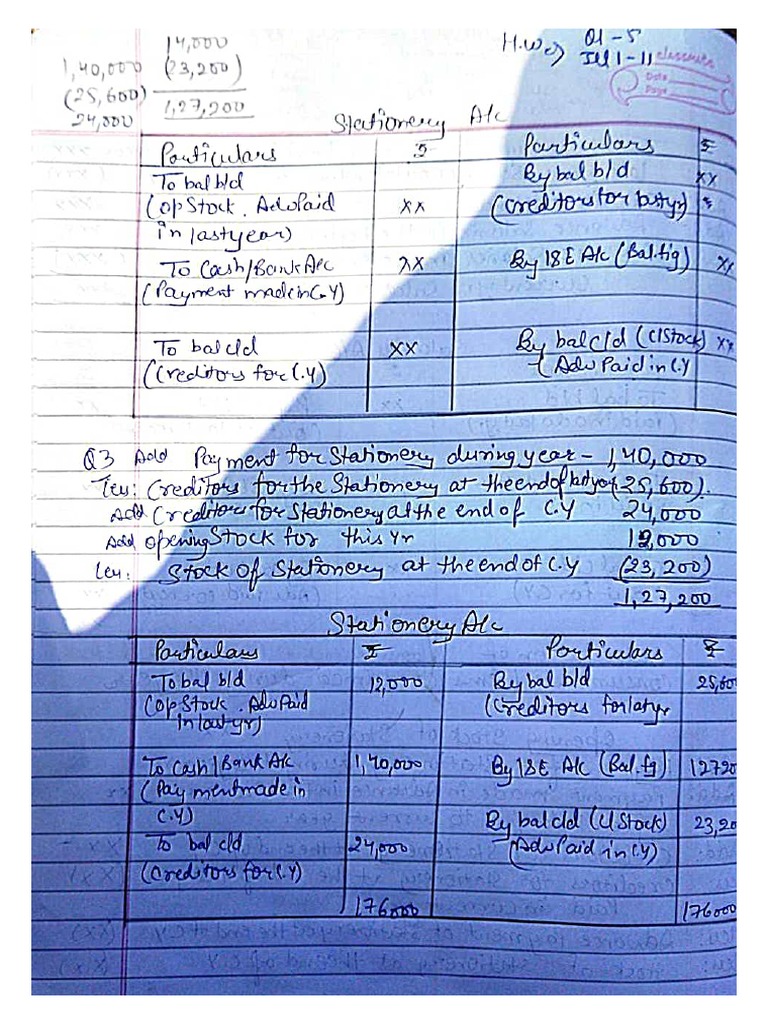 14,000
1,40,000 (23,200)
(25,600)
24,000 1,27,200
H.W Q1-5
Ill 1-11
classmate
Date
Page
Stationery A/c
Particulars ₹ Particulars ₹
To bal b/d By bal b/d xx
(Op Stock. Adv Paid xx (Creditors for last yr)
in last year)
To Cash/Bank A/c xx By I&E A/c (Bal.fig) xx
(Payment made in C.Y)
To bal c/d xx By bal c/d (Cl Stock) xx
(Creditors for C.Y) (Adv Paid in C.Y
Q3 Add Payment for Stationery during year - 1,40,000
Less: Creditors for the Stationery at the end of last yr (25,600)
Add Creditors for Stationery at the end of C.Y 24,000
Add opening Stock for this yr 12,000
Less: Stock of Stationery at the end of C.Y (23,200)
1,27,200
Stationery A/c
Particulars ₹ Particulars ₹
To bal b/d 12,000 By bal b/d 25,60
(Op Stock. Adv Paid (Creditors for last yr
in last yr)
To Cash/Bank A/c 1,40,000 By I&E A/c (Bal.fg) 12720
(Payment made in
C.Y) By bal c/d (Cl Stock) 23,20
To bal c/d 24,000 (Adv Paid in C.Y)
(Creditors for C.Y)
176000 176000